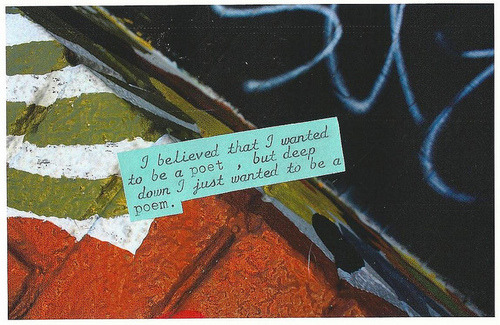 I believed that I wanted
to be a poet , but deep
down I just wanted to be a
poem.